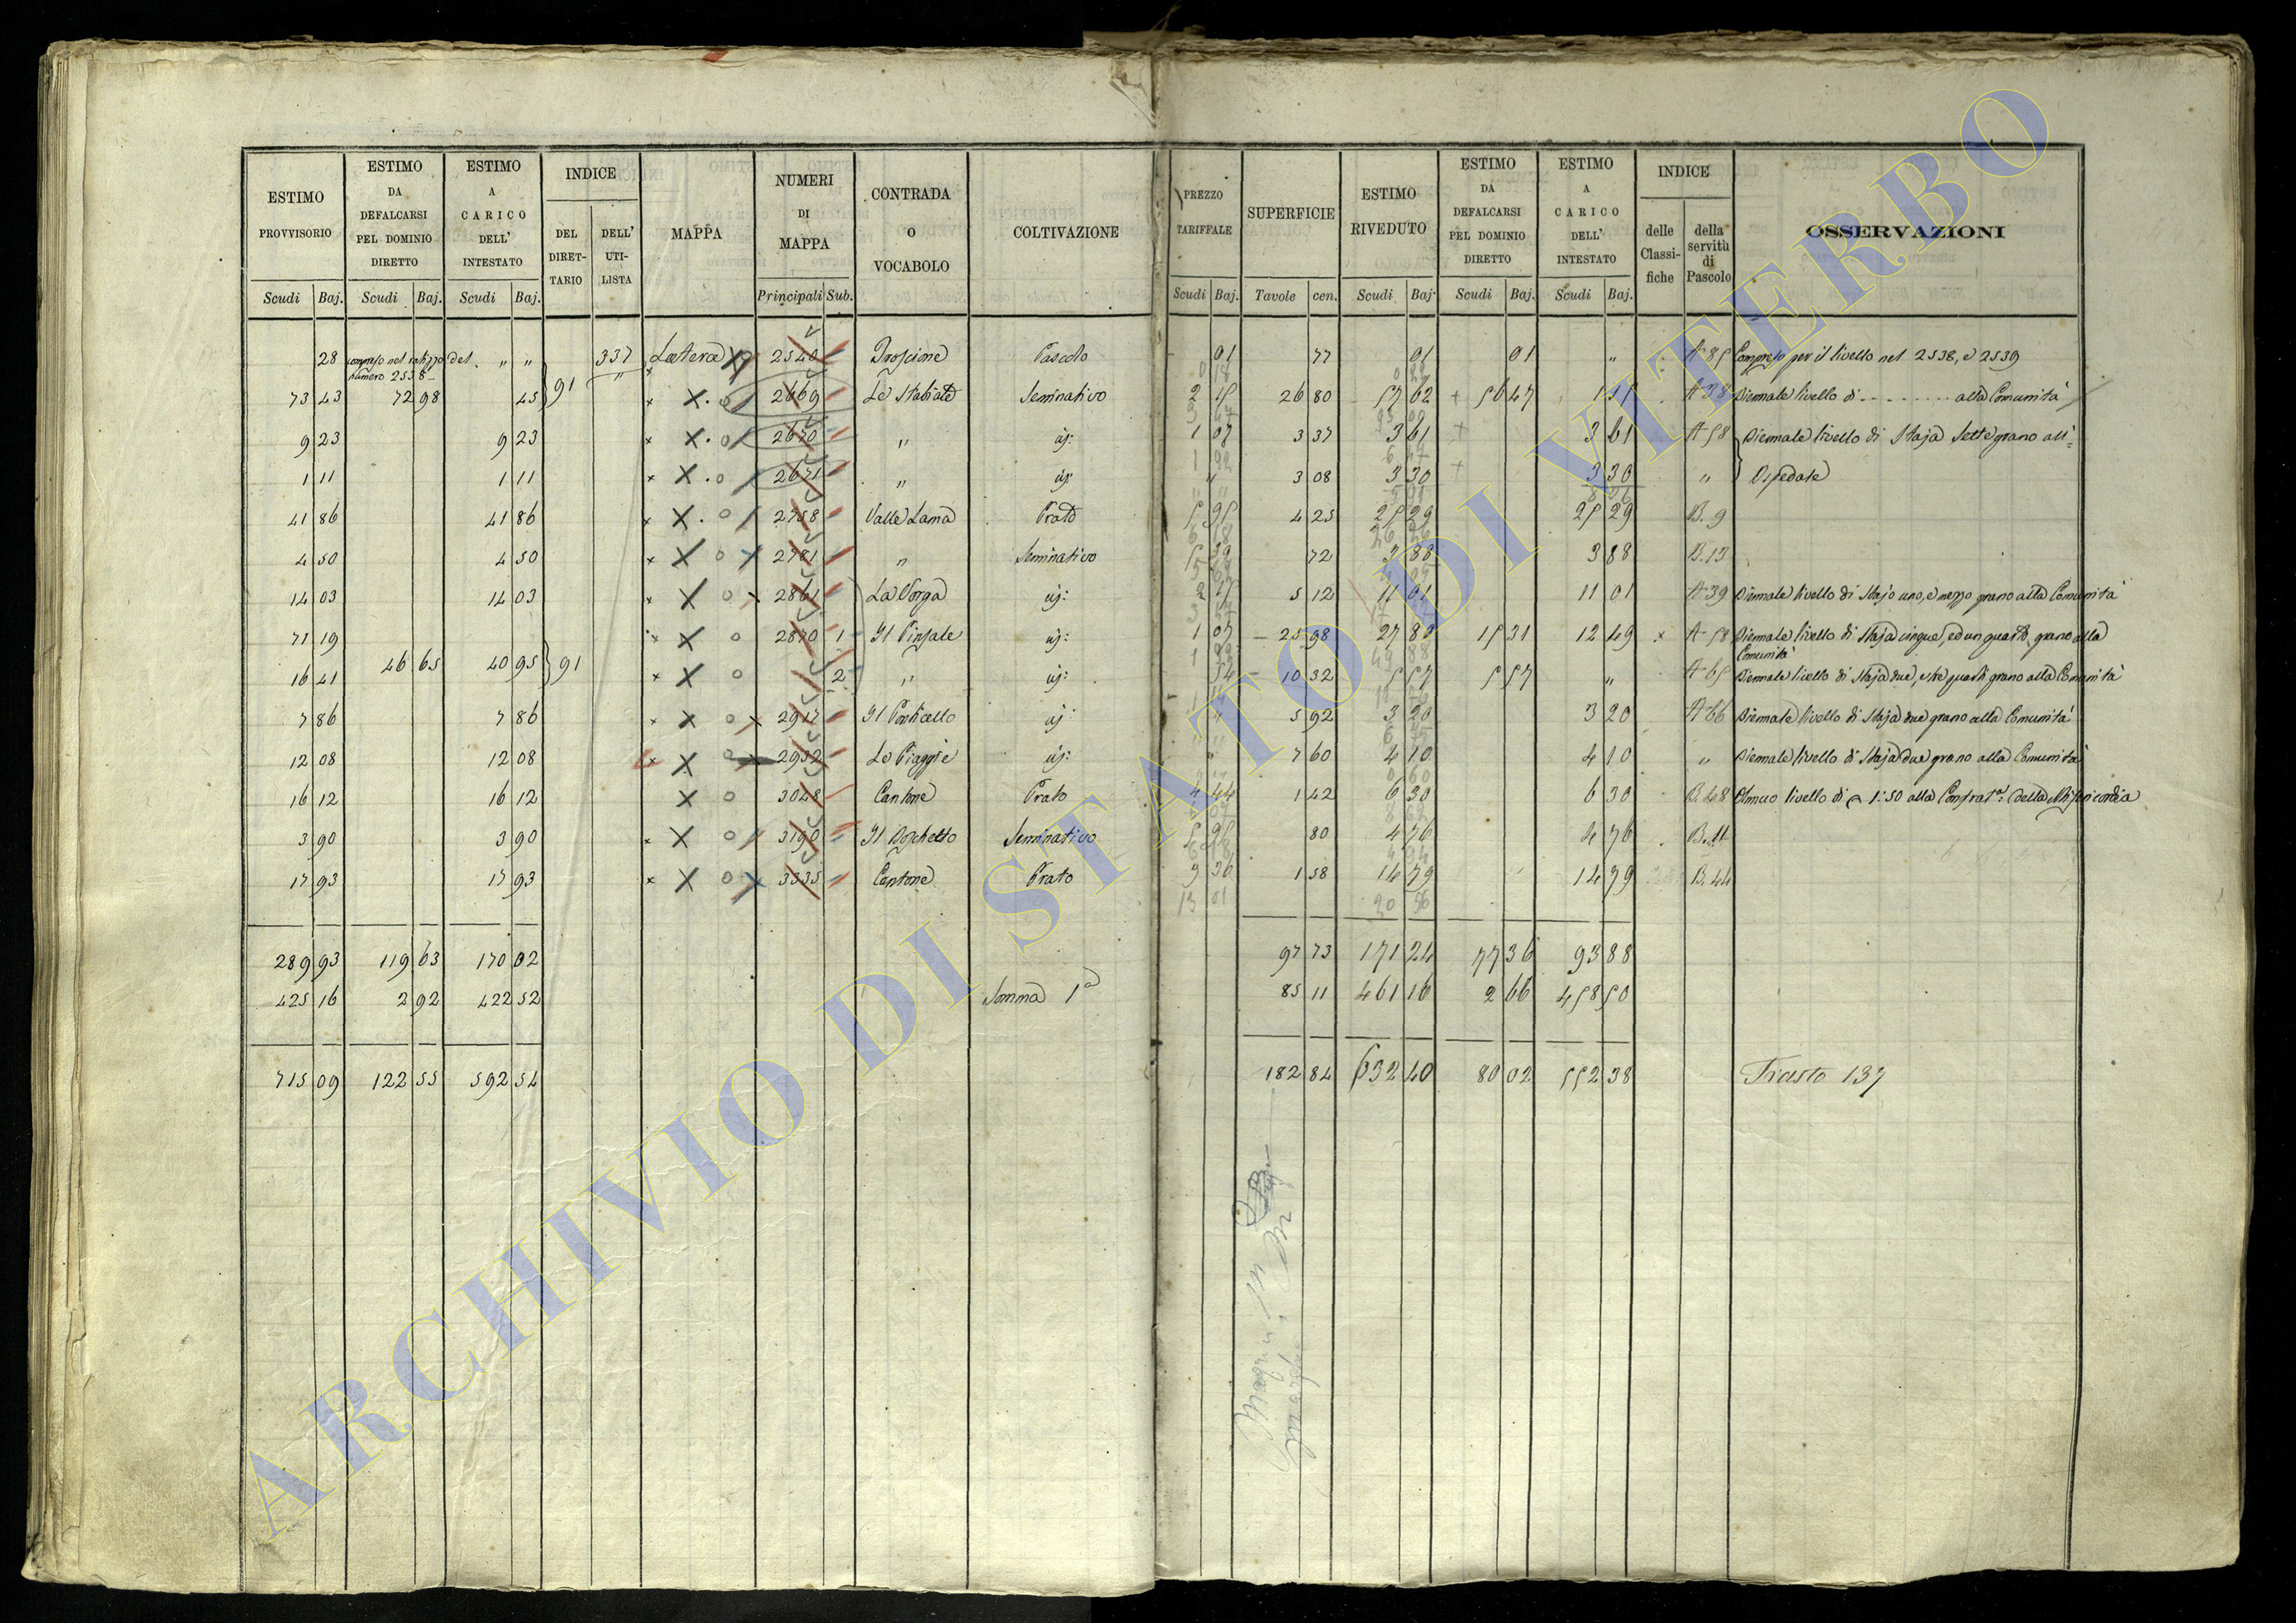 ESTIMO PROVVISORIO | ESTIMO DA DEFALCARSI PEL DOMINIO DIRETTO | ESTIMO A CARICO DELL' INTESTATO | INDICE | MAPPA | NUMERI DI MAPPA | CONTRADA O VOCABOLO | COLTIVAZIONE | PREZZO TARIFFALE | SUPERFICIE | ESTIMO RIVEDUTO | ESTIMO DA DEFALCARSI PEL DOMINIO DIRETTO | ESTIMO A CARICO DELL' INTESTATO | INDICE | OSSERVAZIONI
DEL DIRETTARIO | DELL' UTILISTA | delle Classifiche | della servitù di Pascolo
Scudi | Baj. | Scudi | Baj. | Scudi | Baj. | Principali | Sub. | Scudi | Baj. | Tavole | cen. | Scudi | Baj. | Scudi | Baj. | Scudi | Baj.
28 | compreso nel ratizzo del numero 2538 | " " | 337 | Latera | 2540 | Pascolo | 01 | 77 | 01 | 01 | " | A 85 | Compreso per il livello nel 2538, e 2539
73 43 | 72 98 | 45 | 91 | " | 2669 | Le Stabiate | Seminativo | 2 15 | 26 80 | 57 62 | 56 47 | 1 15 | A 38 | Biennale livello di - - - - - - - - alla Comunità
9 23 | 9 23 | 2670 | " | id: | 1 07 | 3 37 | 3 61 | 3 61 | A 58 | Biennale livello di Staja Sette grano all'=
1 11 | 1 11 | 2671 | " | id: | " | 3 08 | 3 30 | 3 30 | " | Ospedale
41 86 | 41 86 | 2758 | Valle Lama | Prato | 5 95 | 4 25 | 25 29 | 25 29 | B. 9
4 50 | 4 50 | 2781 | " | Seminativo | 5 39 | 72 | 3 88 | 3 88 | B. 13
14 03 | 14 03 | 2861 | La Vorga | id: | 2 15 | 5 12 | 11 01 | 11 01 | A 39 | Biennale livello di Stajo uno, e mezzo grano alla Comunità
71 19 | 2870 | 1 | Il Pinzale | id: | 1 07 | 25 98 | 27 80 | 15 31 | 12 49 | A 58 | Biennale livello di Staja cinque, ed un quarto grano alla Comunità
46 65 | 40 95 | 91
16 41 | 2 | " | id: | 54 | 10 32 | 5 57 | 5 57 | " | A 65 | Biennale livello di Staja due, e tre quarti grano alla Comunità
7 86 | 7 86 | 2917 | Il Ponticello | id: | " | 5 92 | 3 20 | 3 20 | A 66 | Biennale livello di Staja due grano alla Comunità
12 08 | 12 08 | 2932 | Le Piaggie | id: | " | 7 60 | 4 10 | 4 10 | " | Biennale livello di Staja due grano alla Comunità
16 12 | 16 12 | 3048 | Cantone | Prato | 4 44 | 1 42 | 6 30 | 6 30 | B. 48 | Annuo livello di 1:50 alla Confrat.a: della Misericordia
3 90 | 3 90 | 3190 | Il Boschetto | Seminativo | 5 95 | 80 | 4 76 | 4 76 | B. 11
17 93 | 17 93 | 3335 | Cantone | Prato | 9 36 | 1 58 | 14 79 | 14 79 | B. 44
13 01 | 20 56
289 93 | 119 63 | 170 02 | 97 73 | 171 24 | 77 36 | 93 88
425 16 | 2 92 | 422 52 | Somma 1a | 85 11 | 461 16 | 2 66 | 458 50
715 09 | 122 55 | 592 54 | 182 84 | 632 40 | 80 02 | 552 38 | Trasto 137
ARCHIVIO DI STATO DI VITERBO